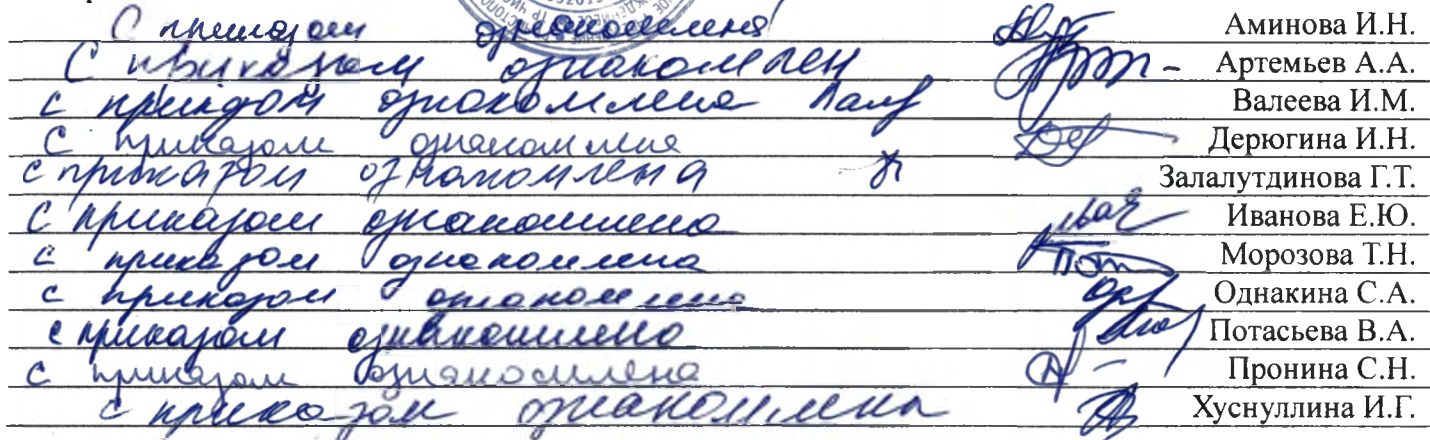 С приказом ознакомлена Аминова И.Н.
С приказом ознакомлен Артемьев А.А.
с приказом ознакомлена Валеева И.М.
С приказом ознакомлена Дерюгина И.Н.
с приказом ознакомлена Залалутдинова Г.Т.
с приказом ознакомлена Иванова Е.Ю.
с приказом ознакомлена Морозова Т.Н.
с приказом ознакомлена Однакина С.А.
с приказом ознакомлена Потасьева В.А.
с приказом ознакомлена Пронина С.Н.
с приказом ознакомлена Хуснуллина И.Г.